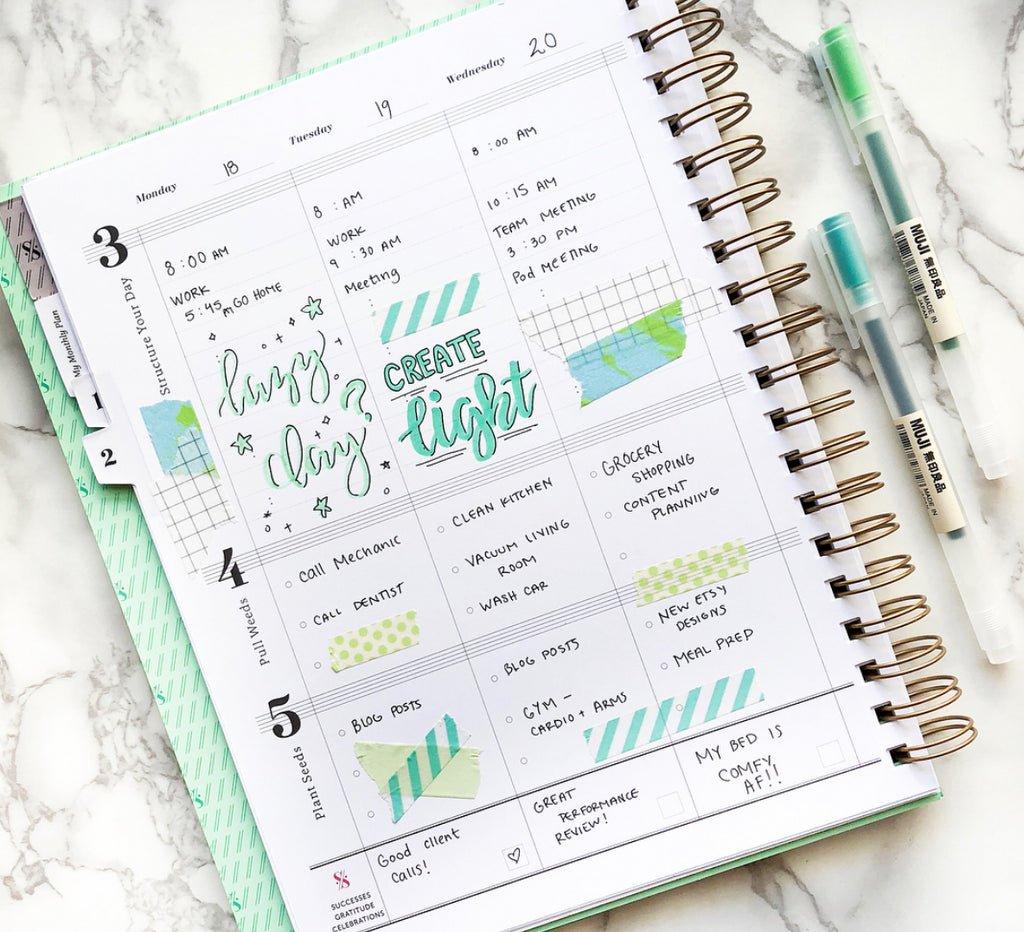 Monday 18
Tuesday 19
Wednesday 20
3
Structure Your Day
8:00 AM
WORK
5:45pm GO HOME
lazy
day?
8 : AM
WORK
9 : 30 AM
Meeting
CREATE
light
8 : 00 AM
10 : 15 AM
TEAM MEETING
3 : 30 PM
Pod MEETING
My Monthly Plan
1
2
4
Pull Weeds
Call Mechanic
CALL DENTIST
CLEAN KITCHEN
VACUUM LIVING
ROOM
WASH CAR
GROCERY
SHOPPING
CONTENT
PLANNING
5
Plant Seeds
BLOG POSTS
BLOG POSTS
GYM –
CARDIO + ARMS
NEW ETSY
DESIGNS
MEAL PREP
SUCCESSES
GRATITUDE
CELEBRATIONS
Good client
calls!
GREAT
PERFORMANCE
REVIEW!
MY BED IS
COMFY
AF!!
MUJI 無印良品
MADE IN
JAPAN
MUJI 無印良品
MADE IN